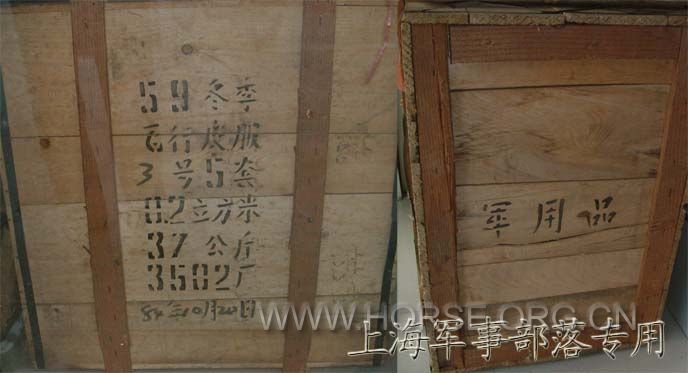 59 冬季
飞行皮服
3 号 5 套
0.2立方米
37 公斤
3502厂
84年10月20日
軍用品
WWW.HORSE.ORG.CN
上海军事部落专用